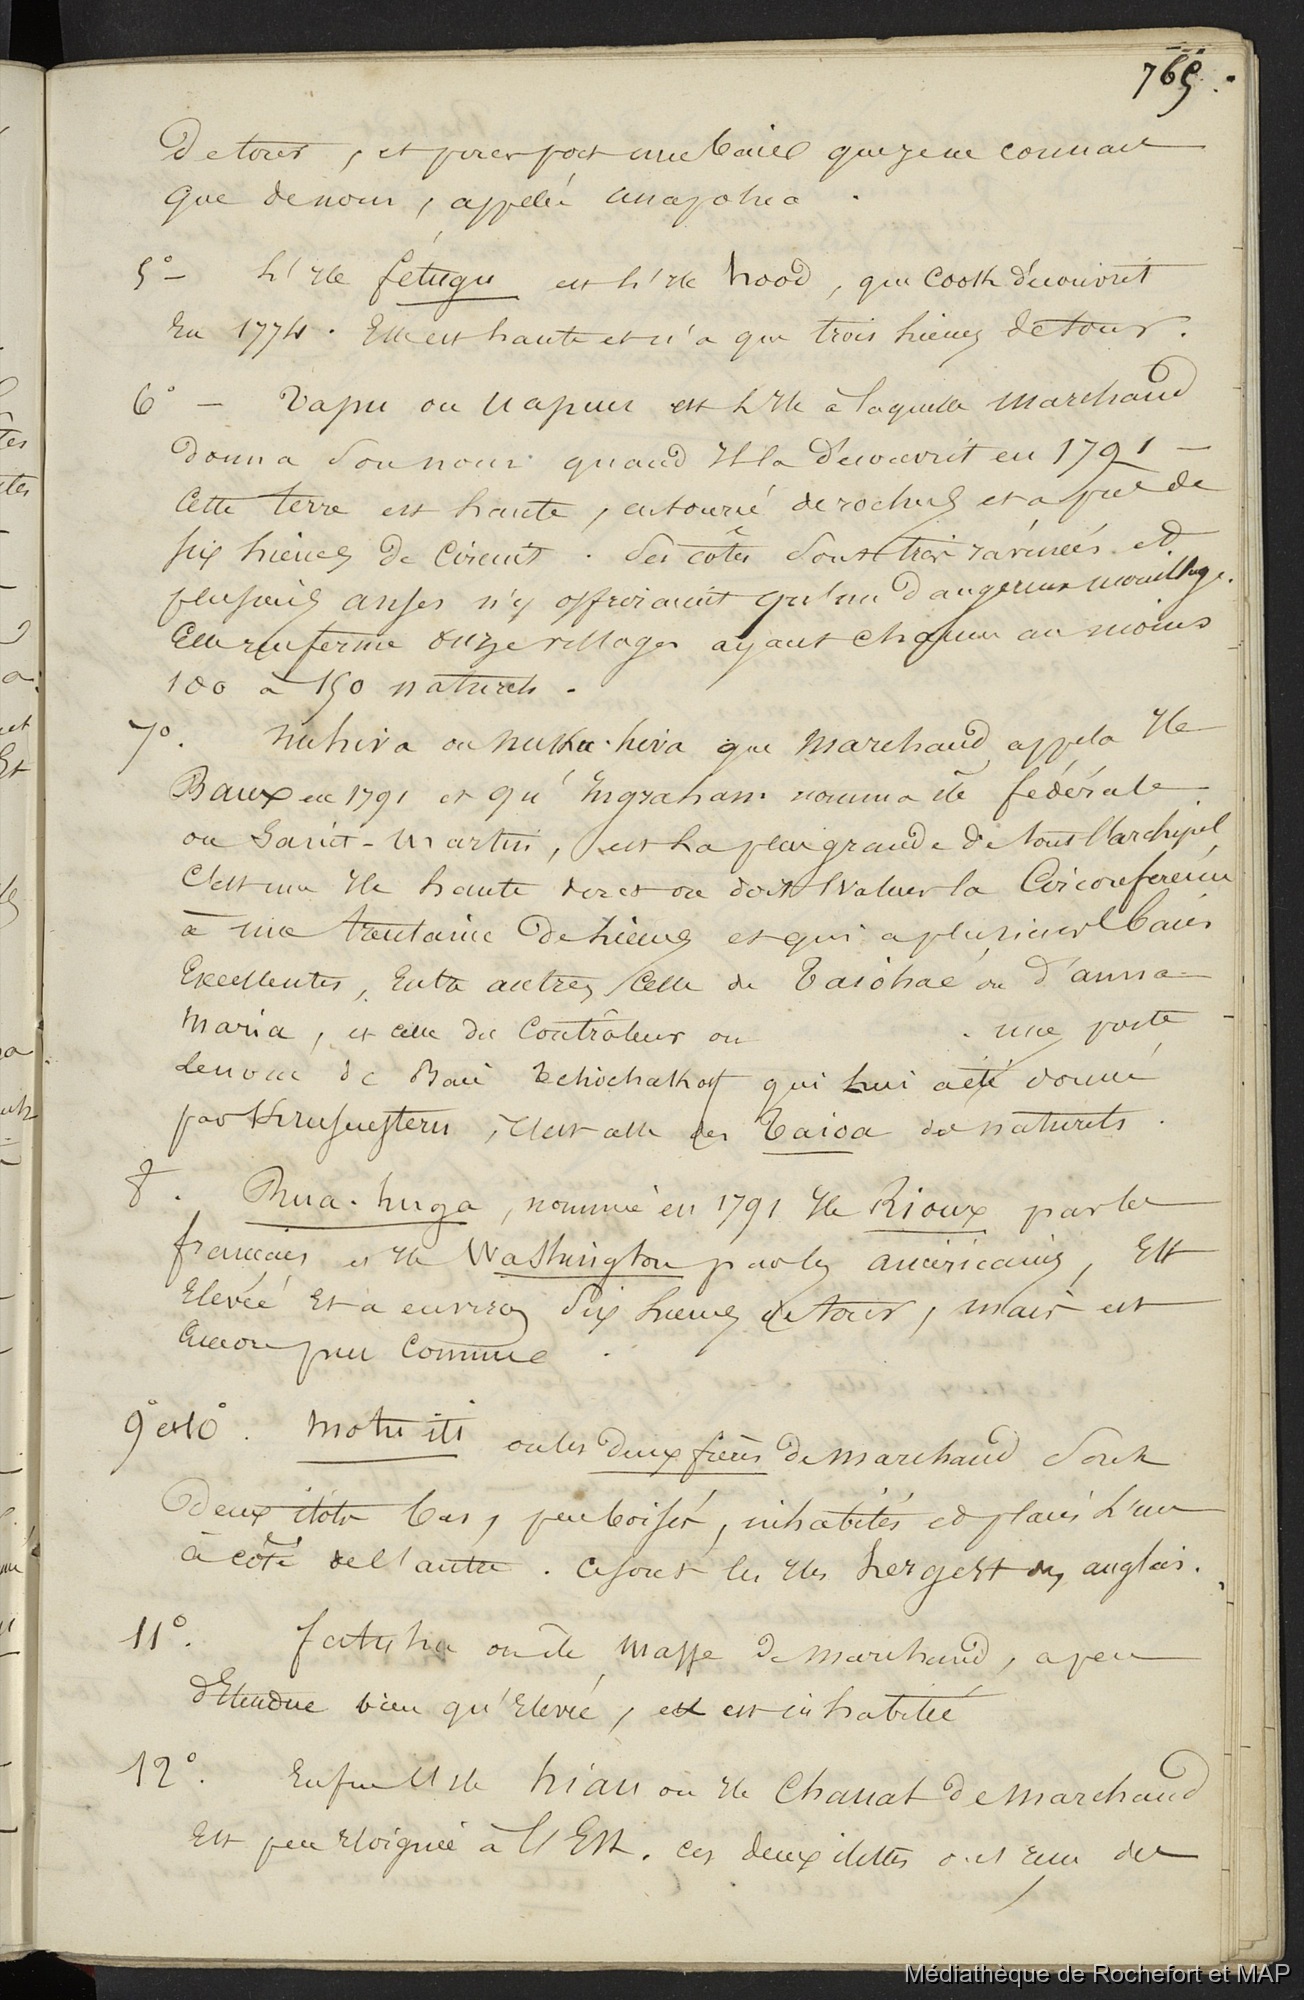 769.
de tour, et possède une baie que je ne connais
que de nom, appelée anapohea.
5° — L'Ile fétugu est L'Ile hood, que Cook découvrit
En 1774. Elle est haute et n'a que trois Lieues de tour.
6° — Vapu ou Uapua est L'Ile à laquelle Marchand
donna son nom quand Il la découvrit en 1791 —
Cette terre est haute, entourée de rochers et a près de
six Lieues de Circuit. Ses côtes sont très ravinées et
plusieurs anses n'y offriraient qu'un dangereux mouillage.
Elle renferme onze villages ayant chacun au moins
100 à 150 naturels.
7°. Nuhiva ou Nuka-hiva que Marchand appela Ile
Baux en 1791 et qu'Ingraham nomma île fédérale
ou Sanct-Martin, est La plus grande de tout l'archipel
C'est une Ile haute dont on doit Evaluer la Circonférence
à une trentaine de Lieues et qui a plusieurs baies
Excellentes, Entre autres Celle de Taiohaé ou d'anna-
Maria, et celle du Contrôleur ou . une porte
le nom de Baie Tchichakoff qui lui a été donné
par Krusenstern, c'est celle des Taioa des naturels.
8°. Rua-huga, nommée en 1791 Ile Rioux par les
français et Ile Washington par les américains, Est
Elevée Et a environ six Lieues de tour, mais est
Encore peu connue.
9° et 10°. Motu iti ou les deux frères de Marchand sont
deux îlots bas, peu boisés, inhabités et placés L'un
à côté de l'autre. Ce sont les Iles hergest des anglais.
11°. fatuhu ou île Masse de Marchand, a peu
d'Etendue bien qu'Elevée, et est inhabitée
12°. Enfin l'Ile hiau ou Ile Chanat de Marchand
Est peu Eloignée à l'Est. Ces deux ilettes ont reçu des
Médiathèque de Rochefort et MAP